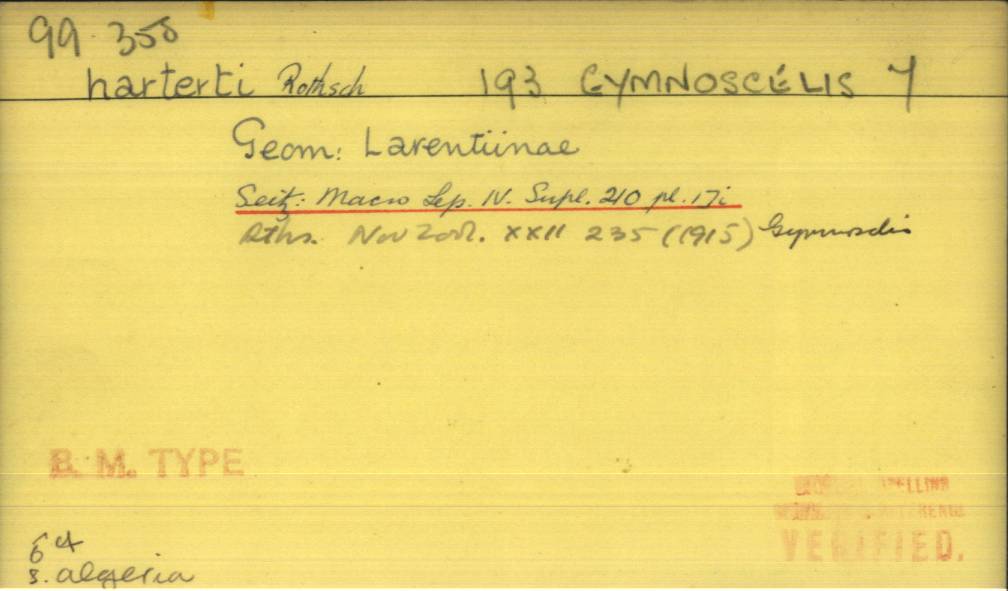 99.358
harterti Rothsch 193 GYMNOSCELIS 7
Geom: Larentiinae
Seitz: Macro Lep. IV. Supl. 210 pl. 17i
Rths. Nov Zool. XXII 235 (1915) Gymnoscelis
B. M. TYPE
VERIFIED.
S. algeria